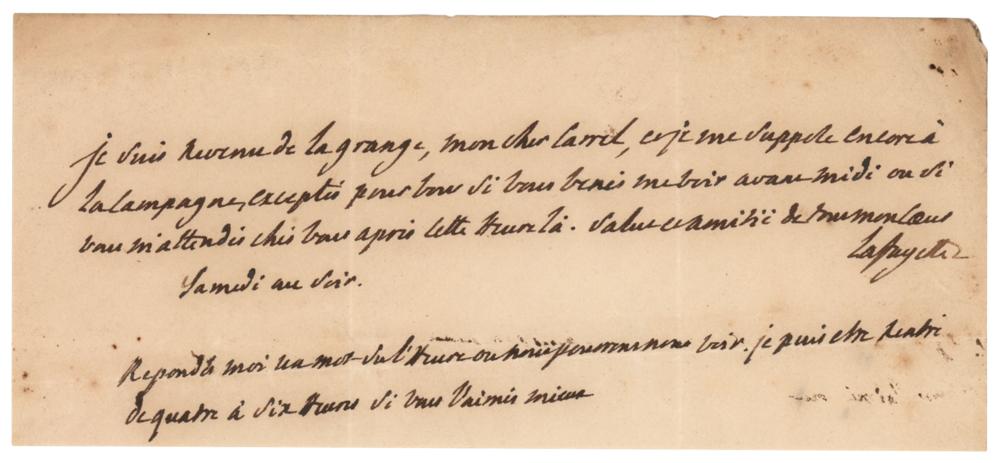 je suis Revenu de la grange, mon cher Carrel, et je me suppose encore à
la Campagne, exceptés pour vous si vous venés me voir avant midi ou si
vous m'attendés chés vous après cette Heure là. Salut et amitié de tout mon Cœur
Lafayette
Samedi au soir.
Repondés moi un mot sur l'Heure ou nous pouvons nous voir. je puis etre Rentré
de quatre à six Heures si vous l'aimés mieux